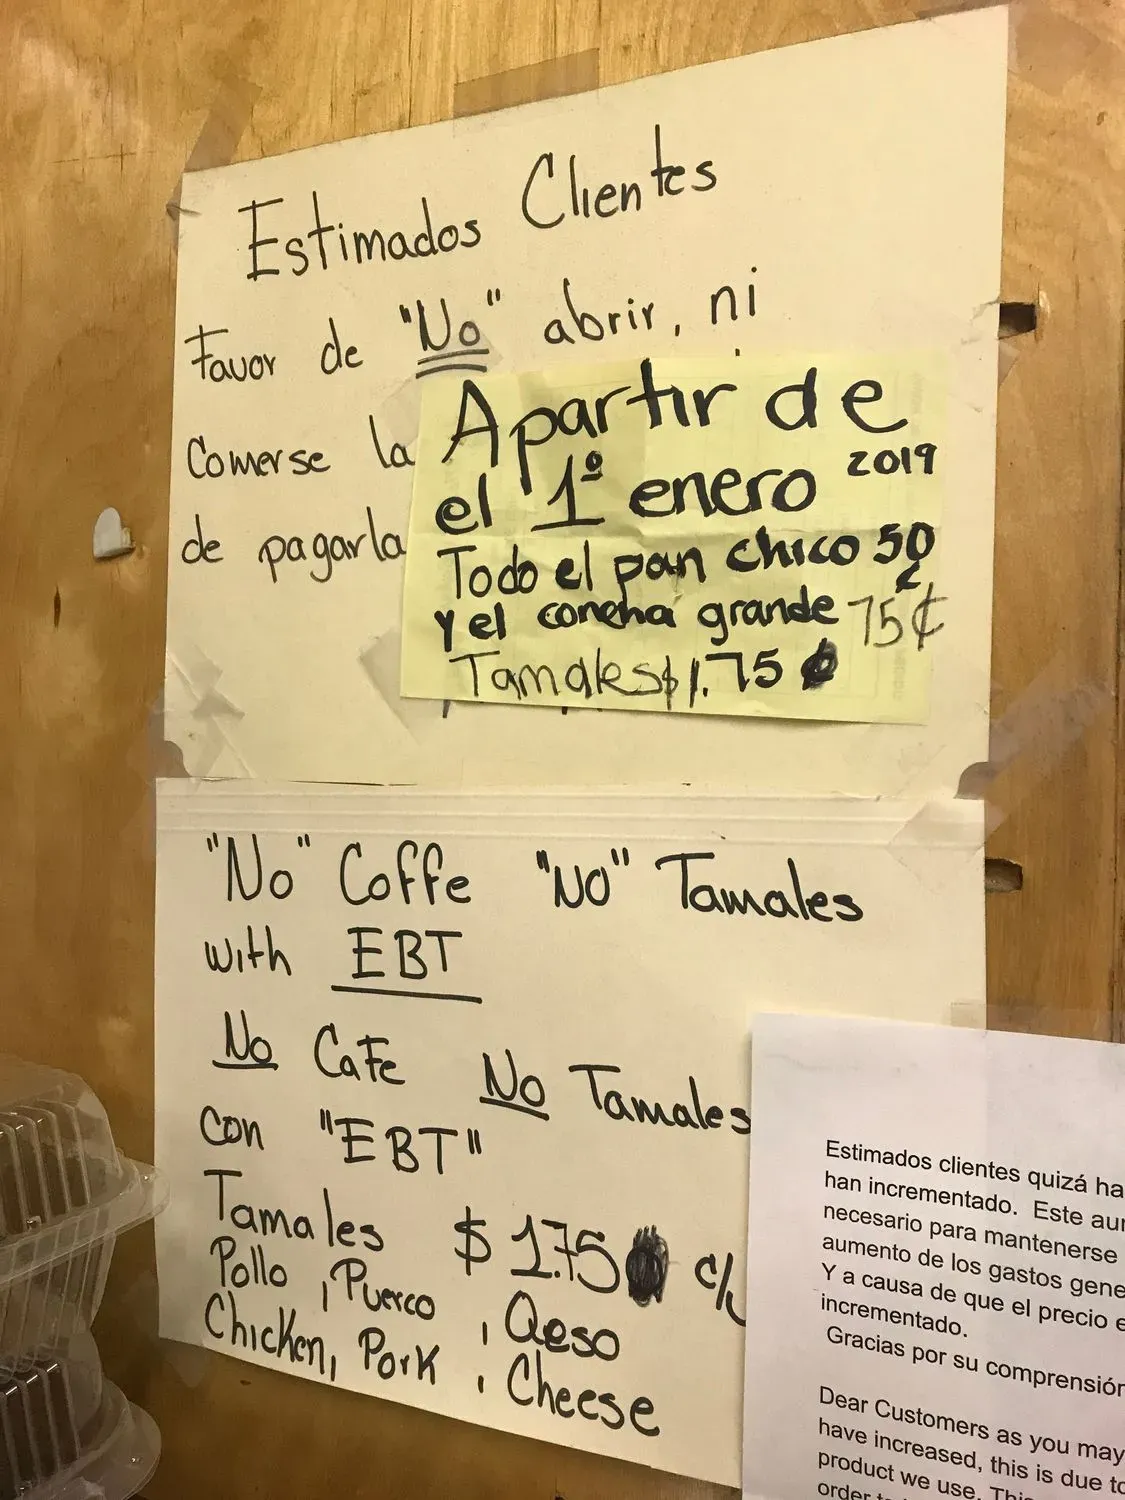 Estimados Clientes
Favor de "No" abrir, ni
Comerse la
de pagarla
Apartir de
el 1º enero 2019
Todo el pan chico 50
¢
y el concha grande 75¢
Tamales $1.75
"No" Coffe "NO" Tamales
with EBT
No CaFe No Tamales
con "EBT"
Tamales $1.75 c/u
Pollo, Puerco, Qeso
Chicken, Pork, Cheese
Estimados clientes quizá ha
han incrementado. Este au
necesario para mantenerse
aumento de los gastos gene
Y a causa de que el precio e
incrementado.
Gracias por su comprensión
Dear Customers as you may
have increased, this is due to
product we use. This
order to